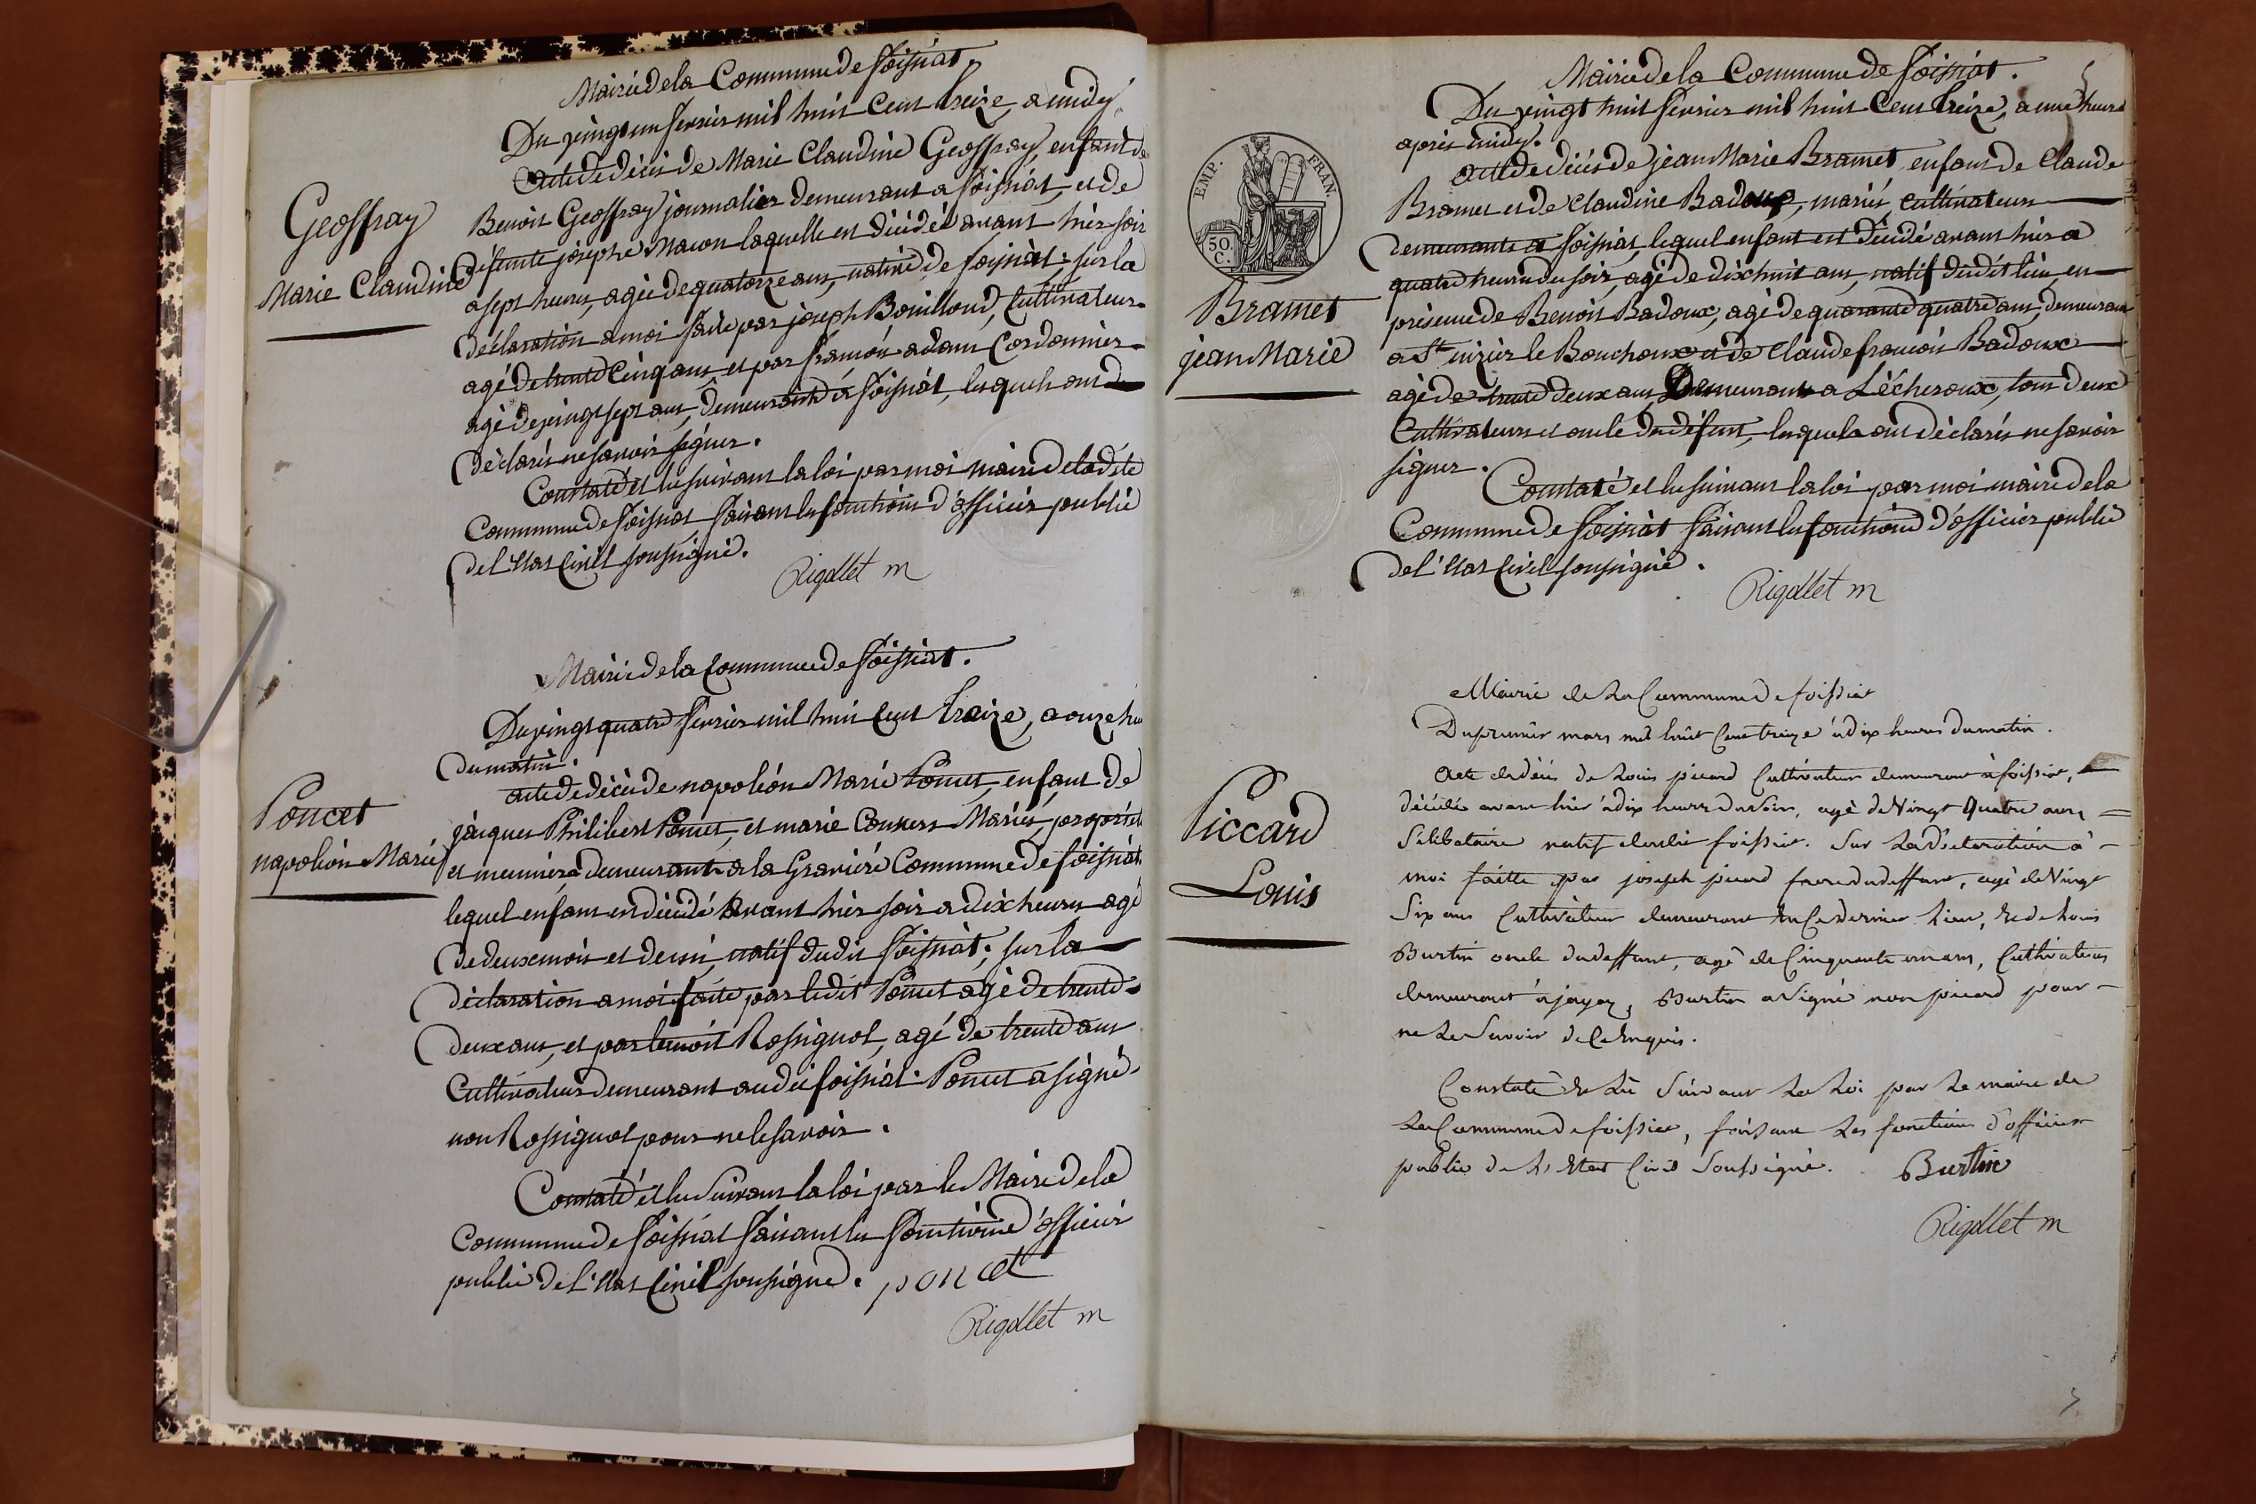 Mairie de la Commune de foissiat.
Du vingt un fevrier mil huit cent treize, a midy
acte de décès de Marie Claudine Geoffray, enfant de
Benoit Geoffray journalier demeurant a foissiat, et de
défunte josephe Macon laquelle est décédée avant hier soir
a sept heures, agée de quatorze ans, native de foissiat, sur la
déclaration a moi faite par joseph Bouilloud, Cultivateur
agé de trente Cinq ans et par françois adam Cordonnier
agé de vingt sept ans, demeurants a foissiat, lesquels ont
déclarés ne savoir signer.
Constaté et lu suivant la loi par moi maire de ladite
Commune de foissiat faisant les fonctions d'officier public
de l'état Civil soussigné.
Rigollet m
Geoffray
Marie Claudine
Mairie de la Commune de foissiat.
Du vingt quatre fevrier mil huit Cent treize, a onze heu
du matin.
acte de décès de napoléon Marie Poncet, enfant de
jacques Philibert Poncet, et marie Mariés, propriét
et meunier demeurant a la Graviere Commune de foissiat
lequel enfant est décédé avant hier soir a dix heures agé
de deux mois et demi, natif dudit foissiat, sur la
déclaration a moi faite par ledit Poncet agé de trente
deux ans, et par benoit Rossignol, agé de trente ans
Cultivateur demeurant audit foissiat. Poncet a signé
non Rossignol pour ne le savoir.
Constaté et lu suivant la loi par le Maire de la
Commune de foissiat faisant les fonctions d'officier
public de l'état Civil soussigné. poncet
Rigollet m
Poncet
napoléon Marie
5
Mairie de la Commune de foissiat.
Du vingt huit fevrier mil huit Cent treize, a une heure
après midy.
acte de décès de jean Marie Bramet, enfant de Claude
Bramet et de Claudine Badoux, mariés, cultivateurs
demeurants a foissiat, lequel enfant est décédé avant hier a
quatre heures du soir, agé de dix huit ans, natif dudit lieu, en
présence de Benoit Badoux, agé de quarante quatre ans, demeurant
a St nizier le Bouchoux et de Claude françois Badoux
agé de trente deux ans, Demeurant a Lécheroux, tous deux
Cultivateurs et oncle du défunt, lesquels ont déclarés ne savoir
signer.
Constaté et lu suivant la loi par moi maire de la
Commune de foissiat faisant les fonctions d'officier public
de l'état Civil soussigné.
Rigollet m
EMP. FRAN.
50. C.
Bramet
jean Marie
Mairie de La Commune de foissiat
Du premier mars mil huit Cent treize à dix heures du matin.
Acte de décès de Louis picard Cultivateur demeurant à foissiat,
décédé avant hier à dix heures du soir, agé de Vingt Quatre ans
Sélibataire natif dudit foissiat. Sur La déclaration à
moi faitte par joseph picard frere du deffunt, agé de Vingt
Six ans Cultivateur demeurant en Ce dernier Lieu, et de Louis
Burtin oncle du deffunt, agé de Cinquante un ans, Cultivateur
demeurant à jayat, Burtin a Signé non picard pour
ne Le Savoir de Ce Enquis.
Constaté et Lu Suivant La Loi par Le maire de
La Commune de foissiat, faisant Les fonctions d'officier
public de L'Etat Civil Soussigné. Burtin
Rigollet m
Piccard
Louis